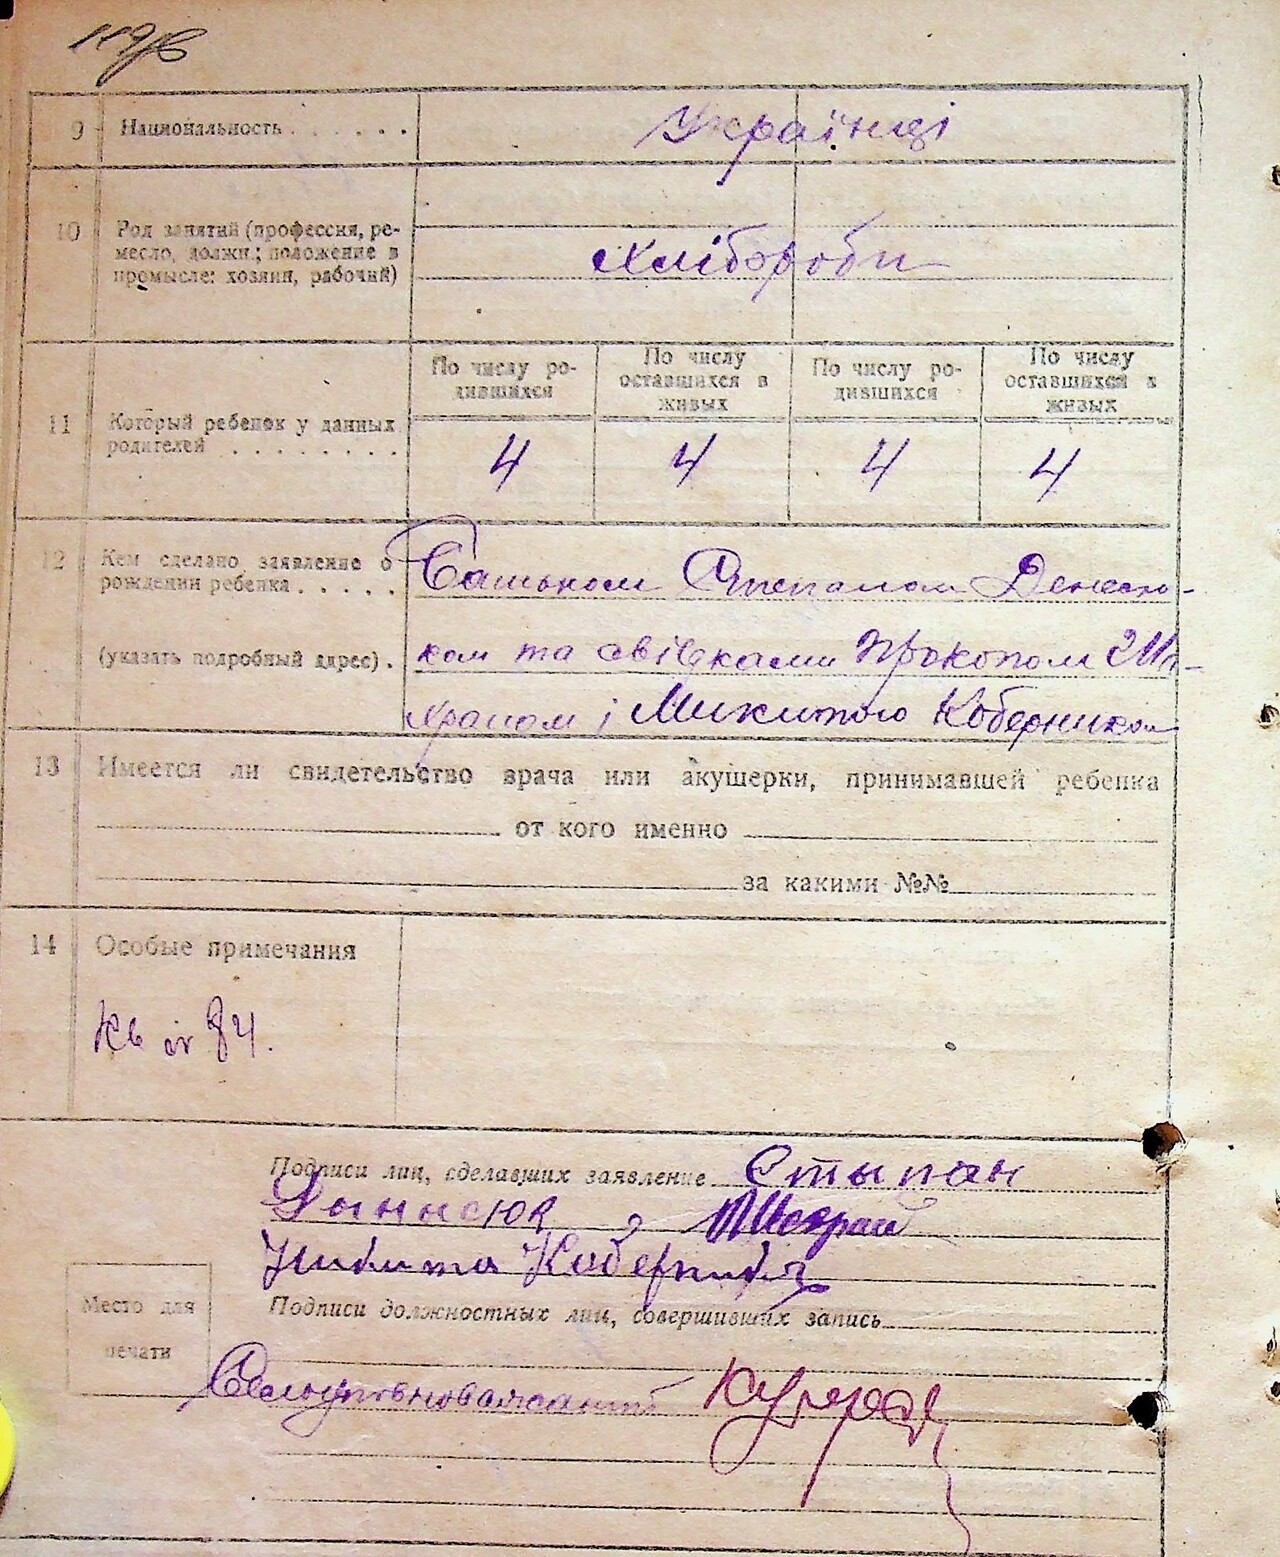 9 Национальность . . . . . . Українці
10 Род занятий (профессия, ре-
месло, должн.; положение в
промысле: хозяин, рабочий)
Хлібороби
По числу ро-
дившихся
По числу
оставшихся в
живых
По числу ро-
дившихся
По числу
оставшихся в
живых
11 Который ребенок у данных
родителей . . . . . . . .
4 4 4 4
12 Кем сделано заявление о
рождении ребенка . . . . .
(указать подробный адрес) .
Батьком Степаном Денесю-
ком та свідками Прокопом
і Микитою Коберником
13 Имеется ли свидетельство врача или акушерки, принимавшей ребенка
от кого именно
за какими №№
14 Особые примечания
84.
Подписи лиц, сделавших заявление Стыпан
Дынысюк
Никита Коберник
Подписи должностных лиц, совершивших запись
Место для
печати
Сельуповноважений